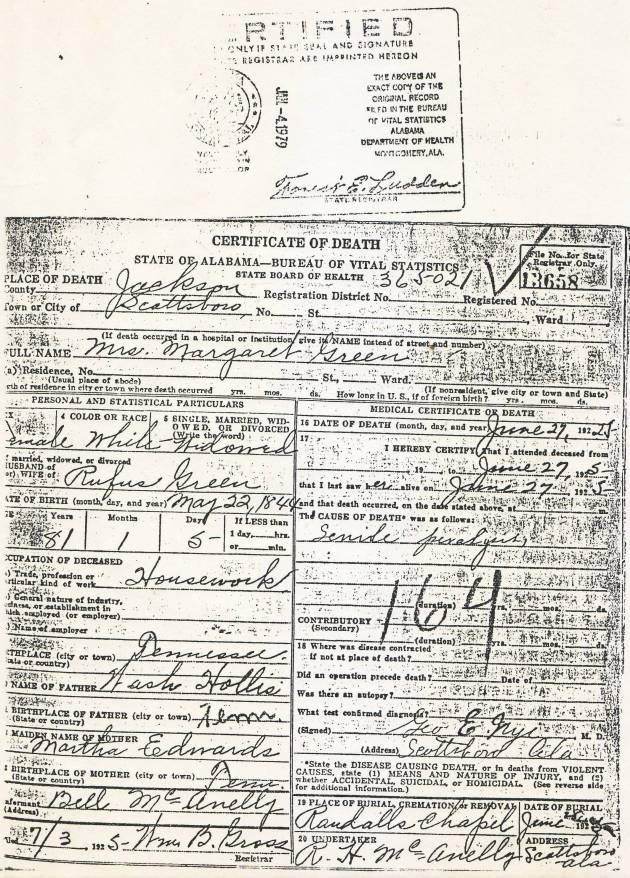 CERTIFIED
ONLY IF STATE SEAL AND SIGNATURE
REGISTRAR ARE IMPRINTED HEREON
THE ABOVE IS AN
EXACT COPY OF THE
ORIGINAL RECORD
FILED IN THE BUREAU
OF VITAL STATISTICS
ALABAMA
DEPARTMENT OF HEALTH
MONTGOMERY, ALA.
JUN -4 1979
E. Ludden
STATE REGISTRAR
CERTIFICATE OF DEATH
STATE OF ALABAMA—BUREAU OF VITAL STATISTICS
STATE BOARD OF HEALTH 365021
File No. for State
Registrar Only.
13658
PLACE OF DEATH
County Jackson Registration District No. Registered No.
Town or City of Scottsboro, No. St. Ward
(If death occurred in a hospital or institution give its NAME instead of street and number)
FULL NAME Mrs. Margaret Green
(a) Residence, No. St., Ward.
(Usual place of abode) (If nonresident, give city or town and State)
residence in city or town where death occurred yrs. mos. ds. How long in U. S., if of foreign birth? yrs. mos. ds.
PERSONAL AND STATISTICAL PARTICULARS
4 COLOR OR RACE 5 SINGLE, MARRIED, WIDOWED, OR DIVORCED
(Write the word)
Female White Widowed
married, widowed, or divorced
HUSBAND of
(or) WIFE of Rufus Green
DATE OF BIRTH (month, day, and year) May 22, 1844
Years Months Days If LESS than
1 day, hrs.
or min.
81 1 5
OCCUPATION OF DECEASED
Trade, profession or
particular kind of work Housework
General nature of industry,
business, or establishment in
which employed (or employer)
Name of employer
BIRTHPLACE (city or town) Tennessee
(State or country)
NAME OF FATHER Wash Hollis
BIRTHPLACE OF FATHER (city or town) Tenn.
(State or country)
MAIDEN NAME OF MOTHER
Martha Eedwards
BIRTHPLACE OF MOTHER (city or town) Tenn.
(State or country)
Informant Bell McAnelly
(Address)
7/3, 1925 Wm B. Gross
Registrar
MEDICAL CERTIFICATE OF DEATH
16 DATE OF DEATH (month, day, and year) June 27, 1925
17
I HEREBY CERTIFY that I attended deceased from
19 to June 27 1925
that I last saw her alive on June 27 1925
and that death occurred, on the date stated above, at
The CAUSE OF DEATH* was as follows:
Senile paralysis
164
(duration) yrs. mos. ds.
CONTRIBUTORY
(Secondary)
(duration) yrs. mos. ds.
18 Where was disease contracted
if not at place of death?
Did an operation precede death? Date of
Was there an autopsy?
What test confirmed diagnosis?
(Signed) Geo E. Nye M. D.
(Address) Scottsboro Ala
*State the DISEASE CAUSING DEATH, or in deaths from VIOLENT
CAUSES, state (1) MEANS AND NATURE OF INJURY, and (2)
whether ACCIDENTAL, SUICIDAL, or HOMICIDAL. (See reverse side
for additional information.)
19 PLACE OF BURIAL, CREMATION, or REMOVAL DATE OF BURIAL
Randalls Chapel June 1925
20 UNDERTAKER ADDRESS
R. H. McAnelly Scottsboro
Ala